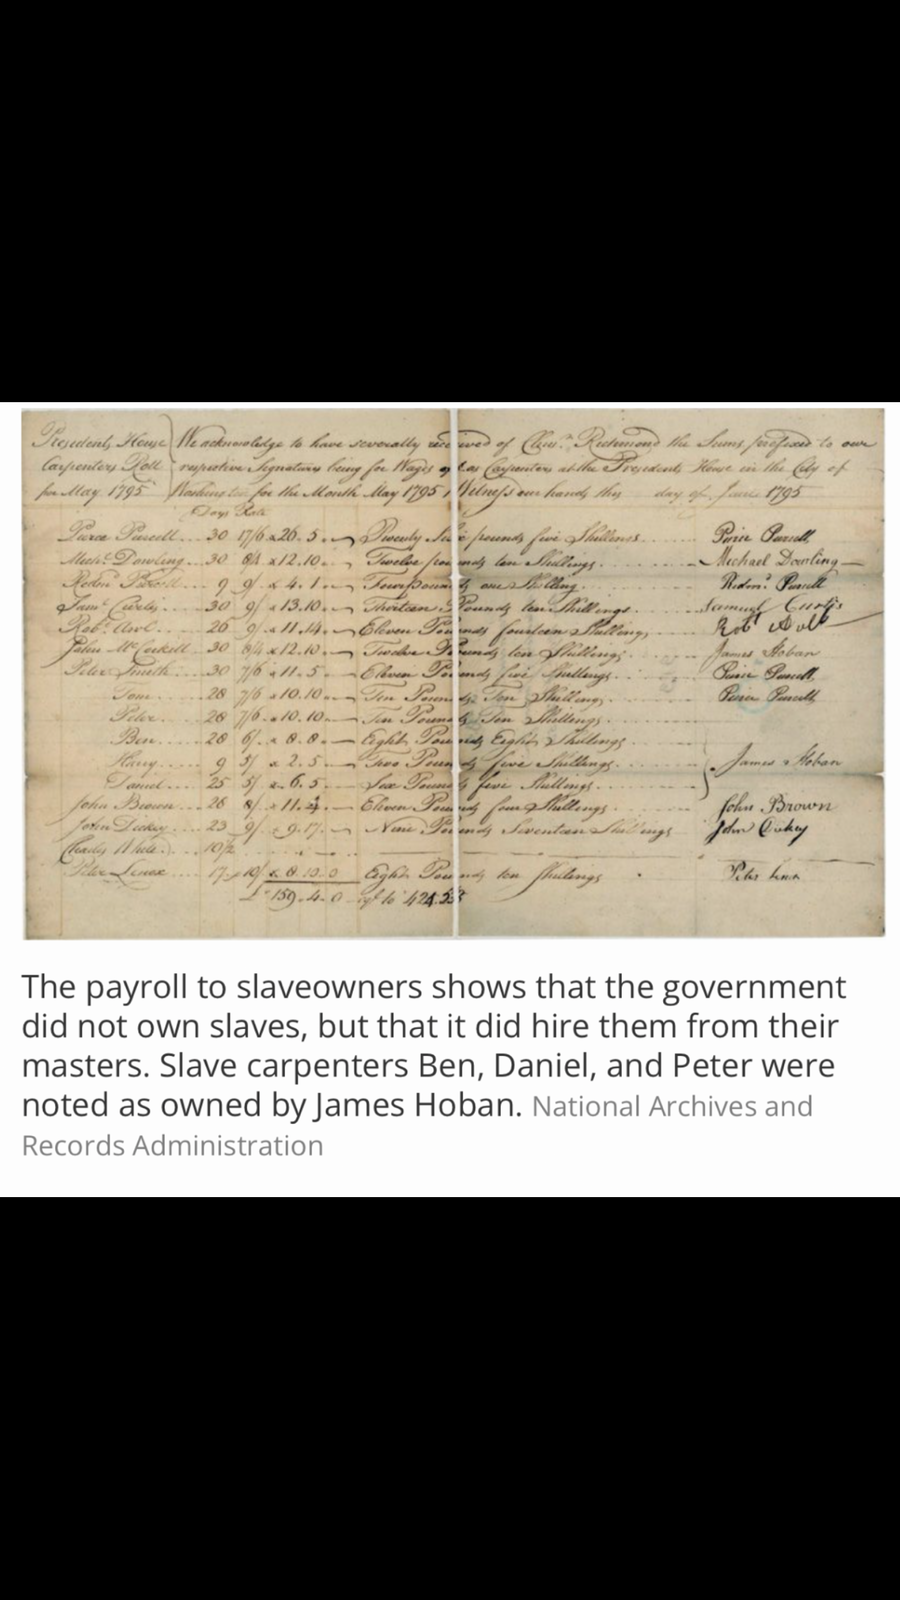 Presidents House We acknowledge to have severally received of Clem.n Richmond the Sums prefixed to our
Carpenters Roll respective Signatures being for Wages as Carpenters at the Presidents House in the City of
for May 1795 Washington for the Month May 1795 Witness our hands this day of June 1795
Days Rate
Pierce Purcell.... 30 17/6 26.5 Twenty Six pounds five Shillings Peirce Purcell
Mich.l Dowling... 30 8/4 12.10 Twelve pounds ten Shillings Michael Dowling
Redm.d Purcell 9 9/ 4.1 Four pounds one Shilling Redm.d Purcell
Sam.l Curtis.... 30 9/ 13.10 Thirteen Pounds ten Shillings Samuel Curtis
Rob.t Awl.... 26 9/ 11.14 Eleven Pounds fourteen Shillings Rob.t
John McCorkill.. 30 8/4 12.10 Twelve Pounds ten Shillings James Hoban
Peter Smith.... 30 7/6 11.5 Eleven Pounds five Shillings Peirce Purcell
Tom.... 28 7/6 10.10 Ten Pounds Ten Shillings Peirce Purcell
Peter.... 28 7/6 10.10 Ten Pounds Ten Shillings
Ben..... 28 6/ 8.8 Eight Pounds Eight Shillings
Harry.... 9 5/ 2.5 Two Pounds five Shillings James Hoban
Daniel.... 25 5/ 6.5 Six Pounds five Shillings
John Brown.... 28 8/ 11.4 Eleven Pounds four Shillings John Brown
John Dickey.... 23 9/ 9.17 Nine Pounds Seventeen Shillings John Dickey
Charles White 10/
Peter Lenox 17 10/ 8.10.0 Eight Pounds ten Shillings Peter Lenox
£159.4.0
The payroll to slaveowners shows that the government
did not own slaves, but that it did hire them from their
masters. Slave carpenters Ben, Daniel, and Peter were
noted as owned by James Hoban. National Archives and
Records Administration